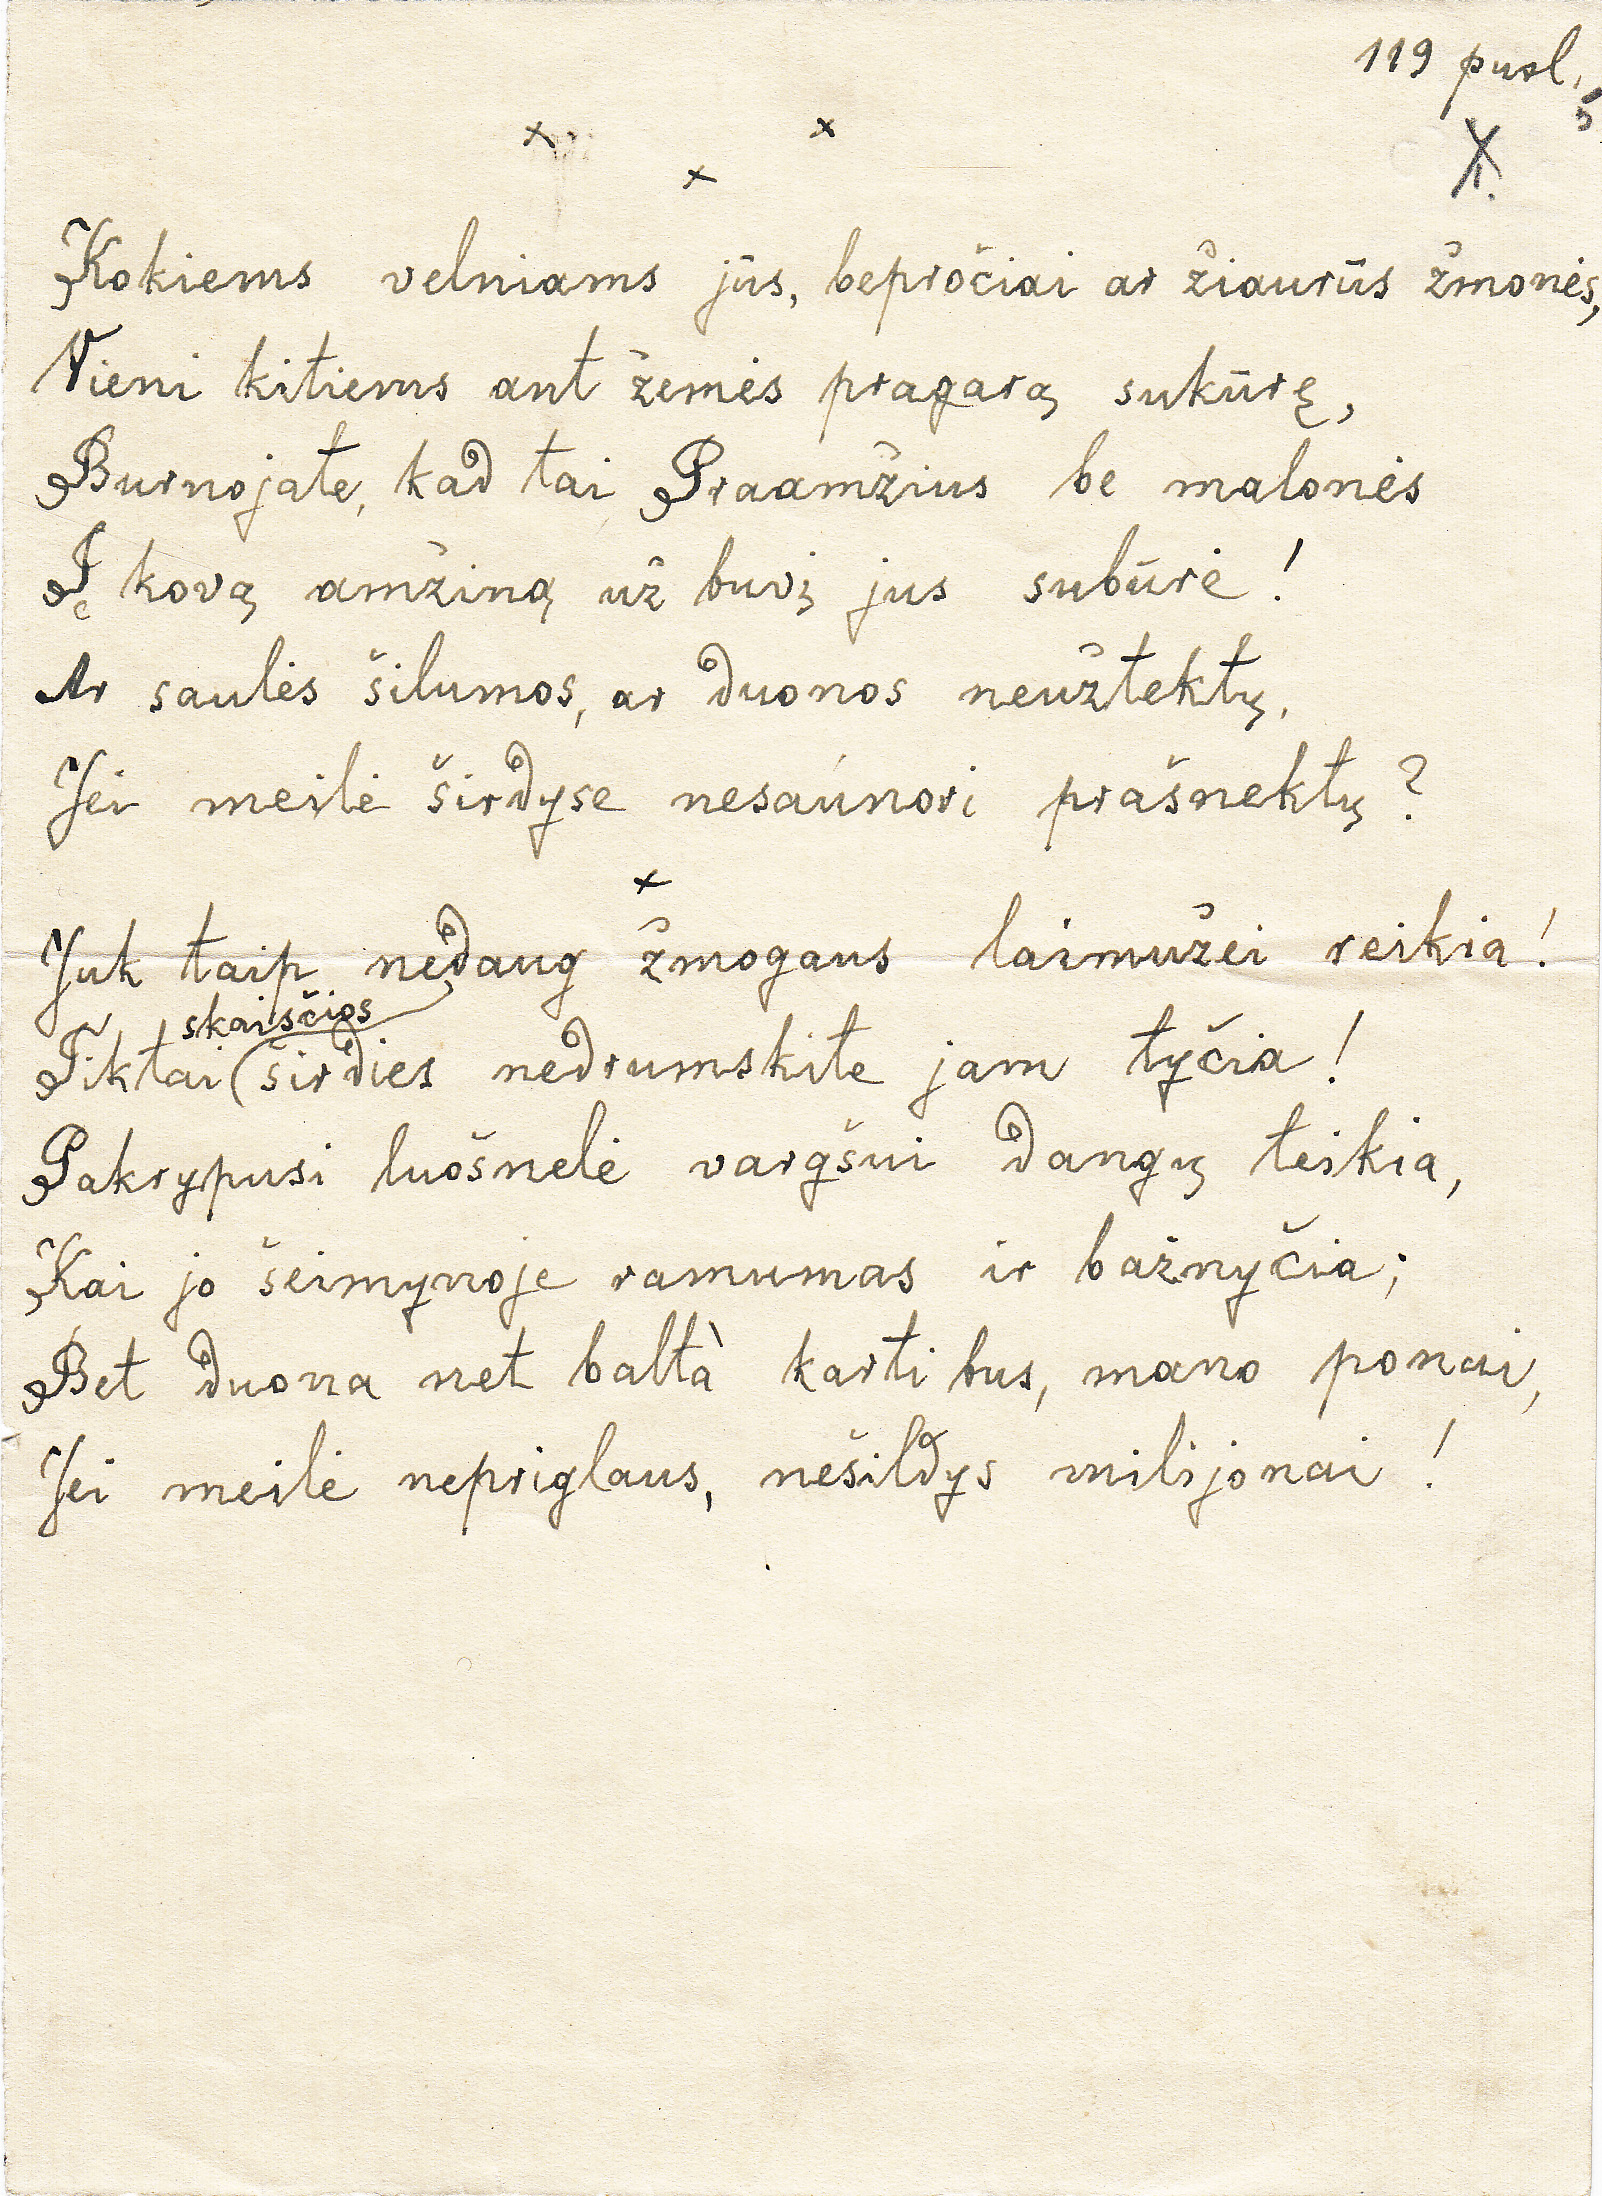 119 pusl.
x x
x
Kokiems velniams jūs, bepročiai ar žiaurūs žmonės,
Vieni kitiems ant žemės pragarą sukūrę,
Burnojate, kad tai Praamžius be malonės
Į kovą amžiną už buvį jus subūrė!
Ar saulės šilumos, ar duonos neužtektų,
Jei meilė širdyse nesaúnori prašnektų?
x
Juk taip nedaug žmogaus laimužei reikia!
skaisčios
Tiktai (širdies nedrumskite jam tyčia!
Pakrypusi luošnelė vargšui dangų teikia,
Kai jo šeimynoje ramumas ir bažnyčia;
Bet duona net baltà karti bus, mano ponai,
Jei meilė nepriglaus, nešildys milijonai!